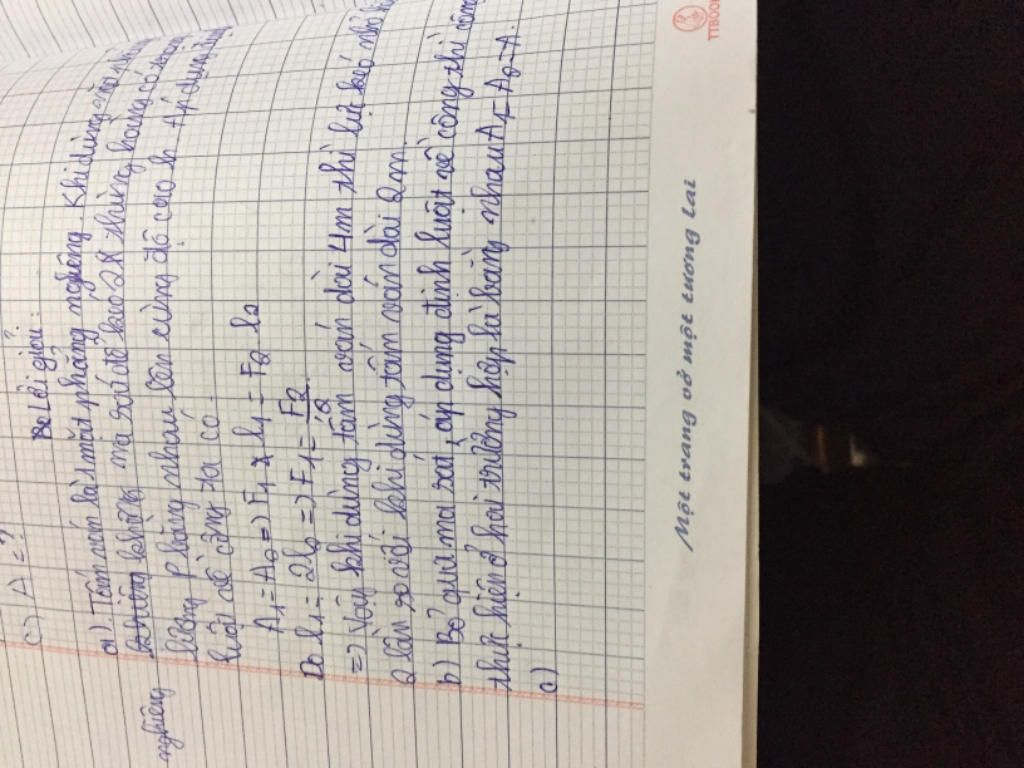 c) A = ?
Bài giải:
a) Tấm ván là mặt phẳng nghiêng. Khi dùng
nghiêng không ma sát để kéo 2 thùng hàng có
lượng P bằng nhau lên cùng độ cao h. Áp dụng định
luật về công ta có.
A1 = A2 => F1 x l1 = F2. l2
Do l1 = 2l2 => F1 = F2/2
=> Vậy khi dùng tấm ván dài 4m thì lực kéo nhỏ
2 lần so với khi dùng tấm ván dài 2m.
b) Bỏ qua ma sát, áp dụng định luật về công thì công
thực hiện ở hai trường hợp là bằng nhau A1 = A2 = A.
c)
Một trang vở một tương lai
TTBOOK